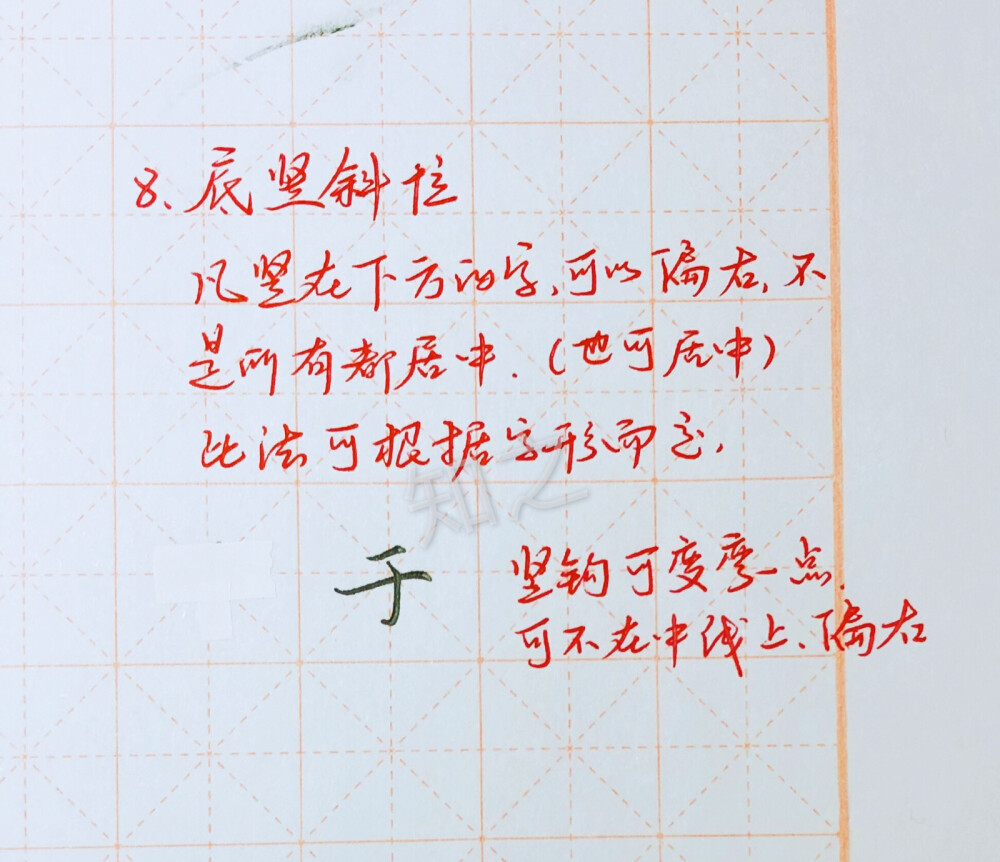 8、底竖斜位
凡竖在下方的字,可以偏右,不
是所有都居中.(也可居中)
此法可根据字形而定,
知之
于
竖钩可变弯一点,
可不在中线上、偏右